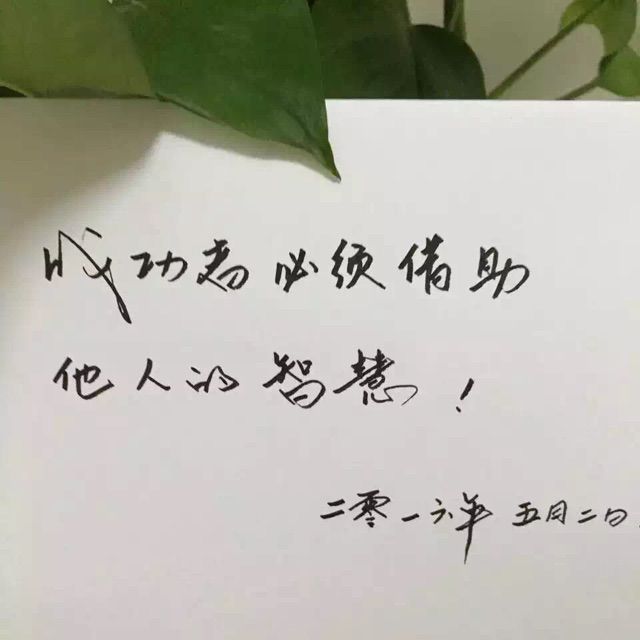 成功者必须借助
他人的智慧！
二零一六年 五月二日